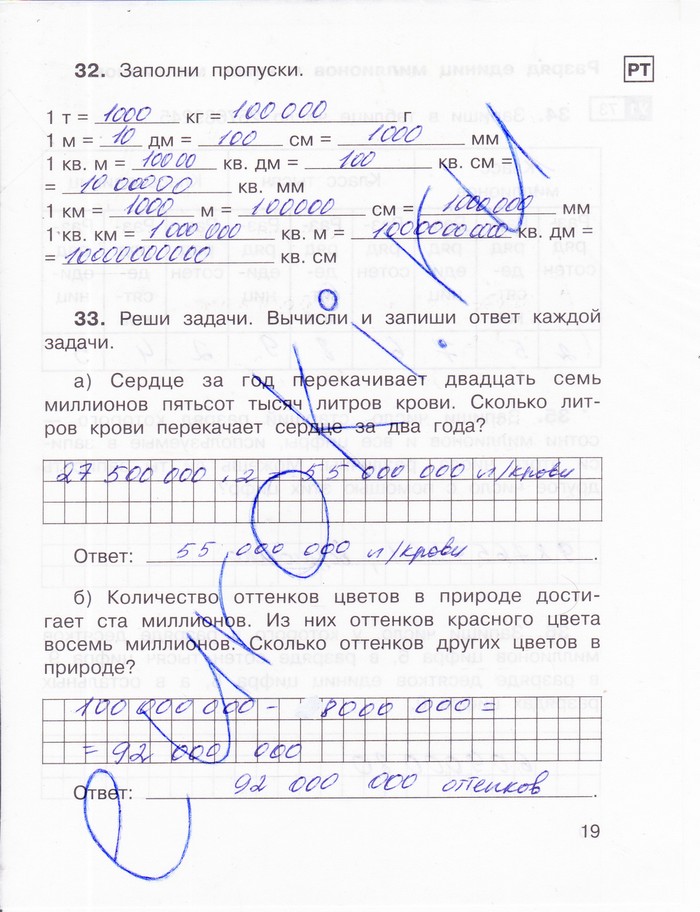 32. Заполни пропуски.
РТ
1 т = 1000 кг = 1000000 г
1 м = 10 дм = 100 см = 1000 мм
1 кв. м = 10000 кв. дм = 100 кв. см =
= 1000000 кв. мм
1 км = 1000 м = 100000 см = 1000000 мм
1 кв. км = 1000000 кв. м = 1000000000 кв. дм =
= 10000000000 кв. см
33. Реши задачи. Вычисли и запиши ответ каждой
задачи.
а) Сердце за год перекачивает двадцать семь
миллионов пятьсот тысяч литров крови. Сколько лит-
ров крови перекачает сердце за два года?
27 500 000 . 2 = 55 000 000 л/крови
Ответ: 55 000 000 л/крови .
б) Количество оттенков цветов в природе дости-
гает ста миллионов. Из них оттенков красного цвета
восемь миллионов. Сколько оттенков других цветов в
природе?
100 000 000 - 8000 000 =
= 92 000 000
Ответ: 92 000 000 оттенков .
19